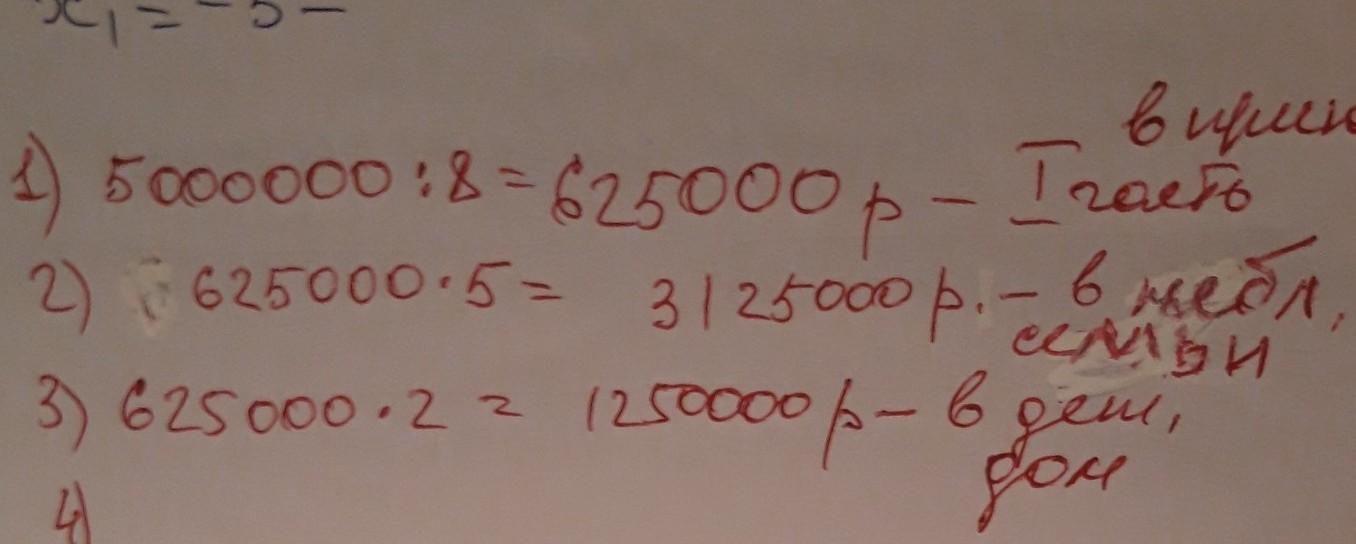 x₁ = -5 -
1) 5000000 : 8 = 625000 р – I часть
2) 625000 · 5 = 3125000 р. – в небл,
семьи
3) 625000 · 2 = 1250000 р – в дет,
дом
4)